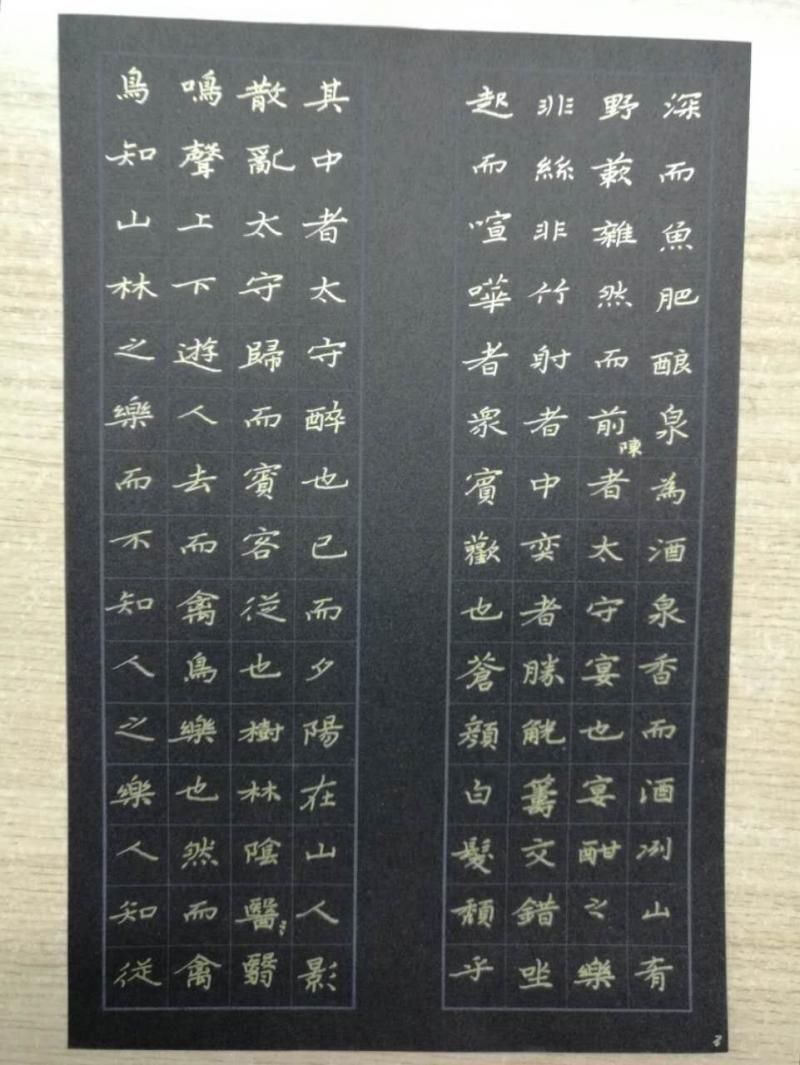 深而魚肥酿泉為酒泉香而酒冽山肴
野蔌雜然而前陳者太守宴也宴酣之樂
非絲非竹射者中奕者勝觥籌交錯坐
起而喧嘩者衆賓歡也蒼顏白髮頹乎
其中者太守醉也已而夕陽在山人影
散亂太守歸而賓客從也樹林陰醫翳
鳴聲上下遊人去而禽鳥樂也然而禽
鳥知山林之樂而不知人之樂人知從